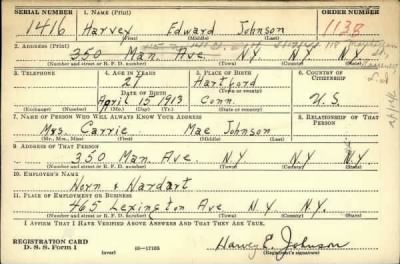 SERIAL NUMBER 1. NAME (Print) ORDER NUMBER
1416 Harvey Edward Johnson 1138
(First) (Middle) (Last)
2. ADDRESS (Print)
350 Man. Ave. N.Y. N.Y. N.Y.
(Number and street or R. F. D. number) (Town) (County) (State)
3. TELEPHONE 4. AGE IN YEARS 5. PLACE OF BIRTH 6. COUNTRY OF CITIZENSHIP
27 Hartford
DATE OF BIRTH (Town or county)
April 15 1913 Conn. U.S.
(Exchange) (Number) (Mo.) (Day) (Yr.) (State or country)
7. NAME OF PERSON WHO WILL ALWAYS KNOW YOUR ADDRESS 8. RELATIONSHIP OF THAT PERSON
Mrs. Carrie Mae Johnson
(Mr., Mrs., Miss) (First) (Middle) (Last)
9. ADDRESS OF THAT PERSON
350 Man. Ave. N.Y. N.Y.
(Number and street or R. F. D. number) (Town) (County) (State)
10. EMPLOYER'S NAME
Horn & Hardart
11. PLACE OF EMPLOYMENT OR BUSINESS
465 Lexington Ave N.Y. N.Y.
(Number and street or R. F. D. number) (Town) (County) (State)
I AFFIRM THAT I HAVE VERIFIED ABOVE ANSWERS AND THAT THEY ARE TRUE.
REGISTRATION CARD
D. S. S. Form 1 (over) 16—17105 Harvey E. Johnson
(Registrant's signature)